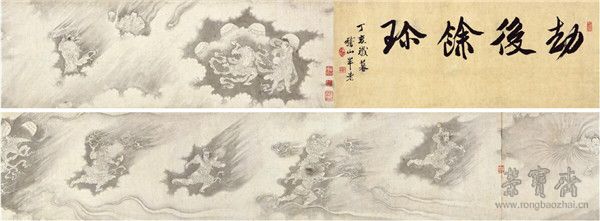 劫後餘珍
丁亥歲暮
山
榮寶齋
www.rongbaozhai.cn